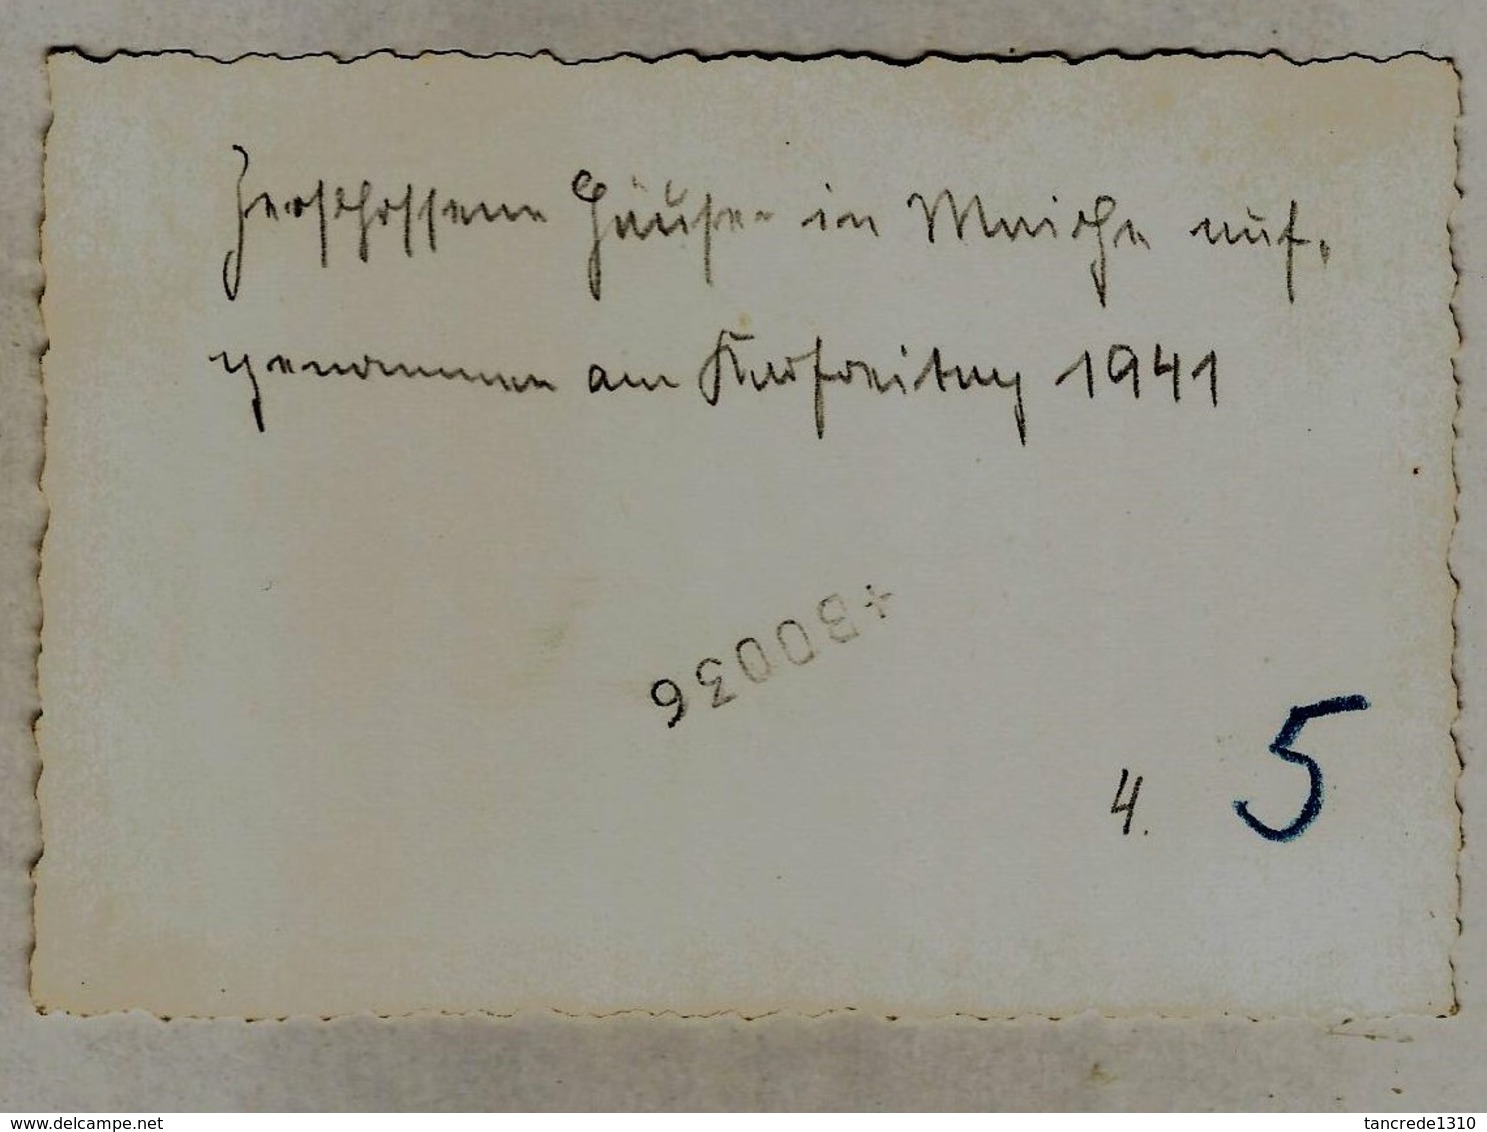 Zerschossene Häuser in Maiche auf-
genommen am Karfreitag 1941
+30036
4. 5
www.delcampe.net
tancrede1310